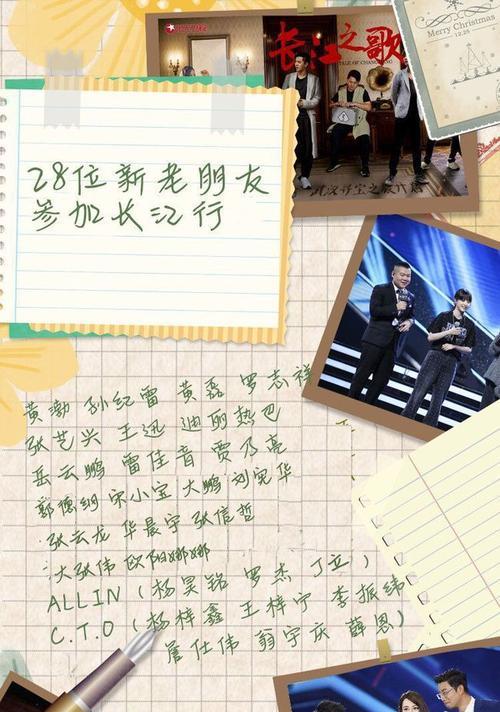 Merry Christmas
12.25
长江之歌
TALE OF CHANGJIANG
28位新老朋友
参加长江行
黄渤 孙红雷 黄磊 罗志祥
张艺兴 王迅 迪丽热巴
岳云鹏 雷佳音 贾乃亮
郭德纲 宋小宝 大鹏 刘宪华
张云龙 华晨宇 张信哲
大张伟 欧阳娜娜
ALLIN (杨昊铭 罗杰 丁立)
C.T.O (杨梓鑫 王梓宁 李振纬
詹仕伟 翁宇庆 薛恩)